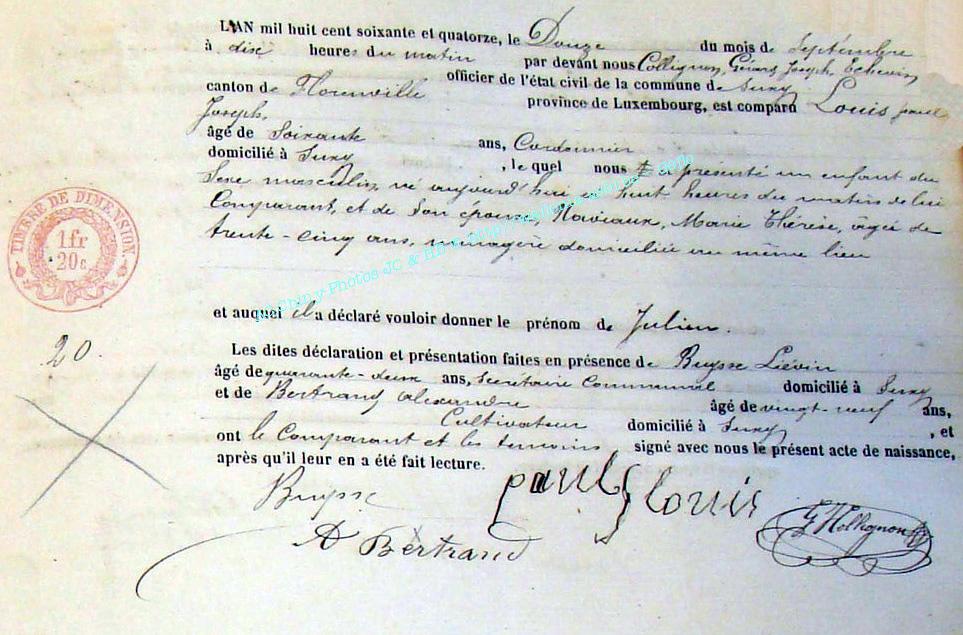 L'AN mil huit cent soixante et quatorze, le Douze du mois de Septembre
à dix heures du matin par devant nous Collignon, Gérard, Joseph, Echevin
officier de l'état civil de la commune de Suxy
canton de Florenville province de Luxembourg, est comparu Louis paul
Joseph,
âgé de Soixante ans, Cordonnier
domicilié à Suxy, lequel nous a présenté un enfant du
Sexe masculin, né aujourd'hui à huit heures du matin de lui
Comparant, et de Son épouse, Marie Thérèse, âgée de
trente-cinq ans, ménagère domiciliée au même lieu
TIMBRE DE DIMENSION.
1fr
20c
et auquel il a déclaré vouloir donner le prénom de Julien.
20.
Les dites déclaration et présentation faites en présence de Buysse Liévin
âgé de quarante-deux ans, Secrétaire Communal domicilié à Suxy
et de Bertrand alexandre âgé de vingt neuf ans,
Cultivateur domicilié à Suxy, et
ont le Comparant et les temoins signé avec nous le présent acte de naissance,
après qu'il leur en a été fait lecture.
Buysse paul louis
A Bertrand